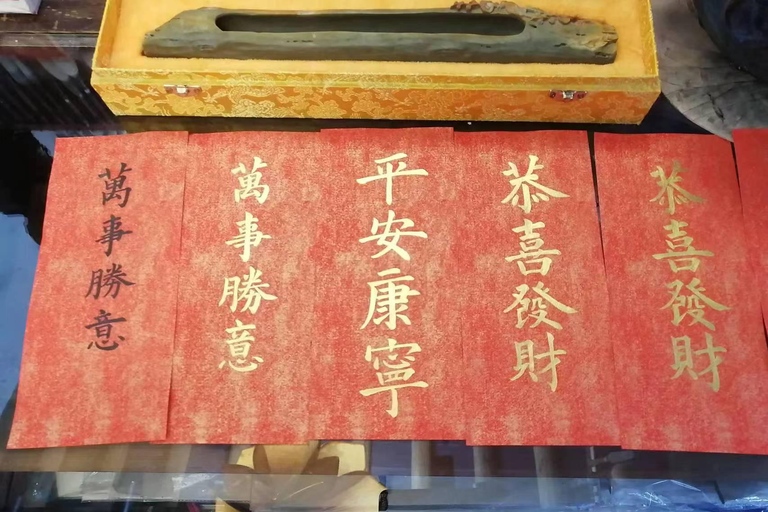 萬事勝意
萬事勝意
平安康寧
恭喜發財
恭喜發財